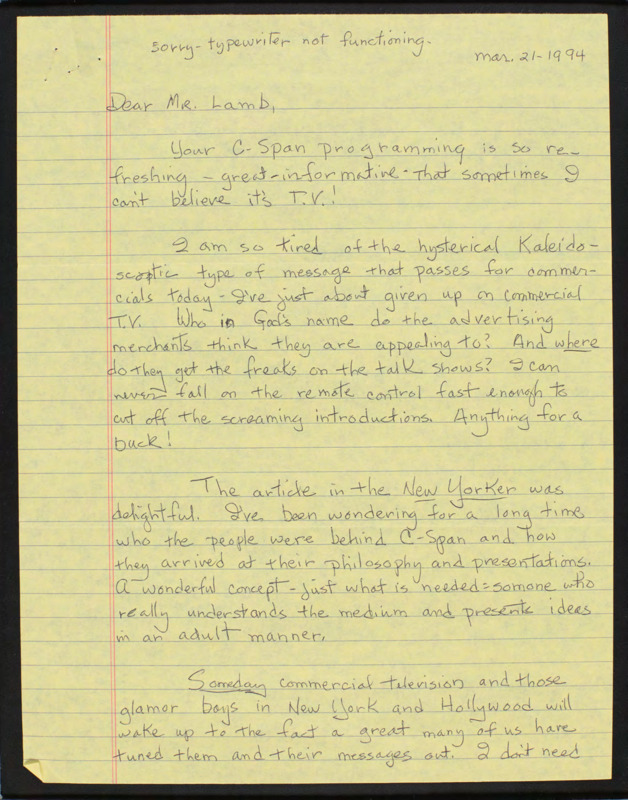 sorry-typewriter not functioning.
Mar. 21-1994
Dear Mr. Lamb,
Your C-Span programming is so re-
freshing - great-informative- that sometimes I
can't believe it's T.V.!
I am so tired of the hysterical Kaleido-
scoptic type of message that passes for commer-
cials today - I've just about given up on commercial
T.V. Who in God's name do the advertising
merchants think they are appealing to? And where
do they get the freaks on the talk shows? I can
never fall on the remote control fast enough to
cut off the screaming introductions. Anything for a
buck!
The article in the New Yorker was
delightful. I've been wondering for a long time
who the people were behind C-Span and how
they arrived at their philosophy and presentations.
A wonderful concept - just what is needed = somone who
really understands the medium and presents ideas
in an adult manner.
Someday commercial television and those
glamor boys in New York and Hollywood will
wake up to the fact a great many of us have
tuned them and their messages out. I don't need